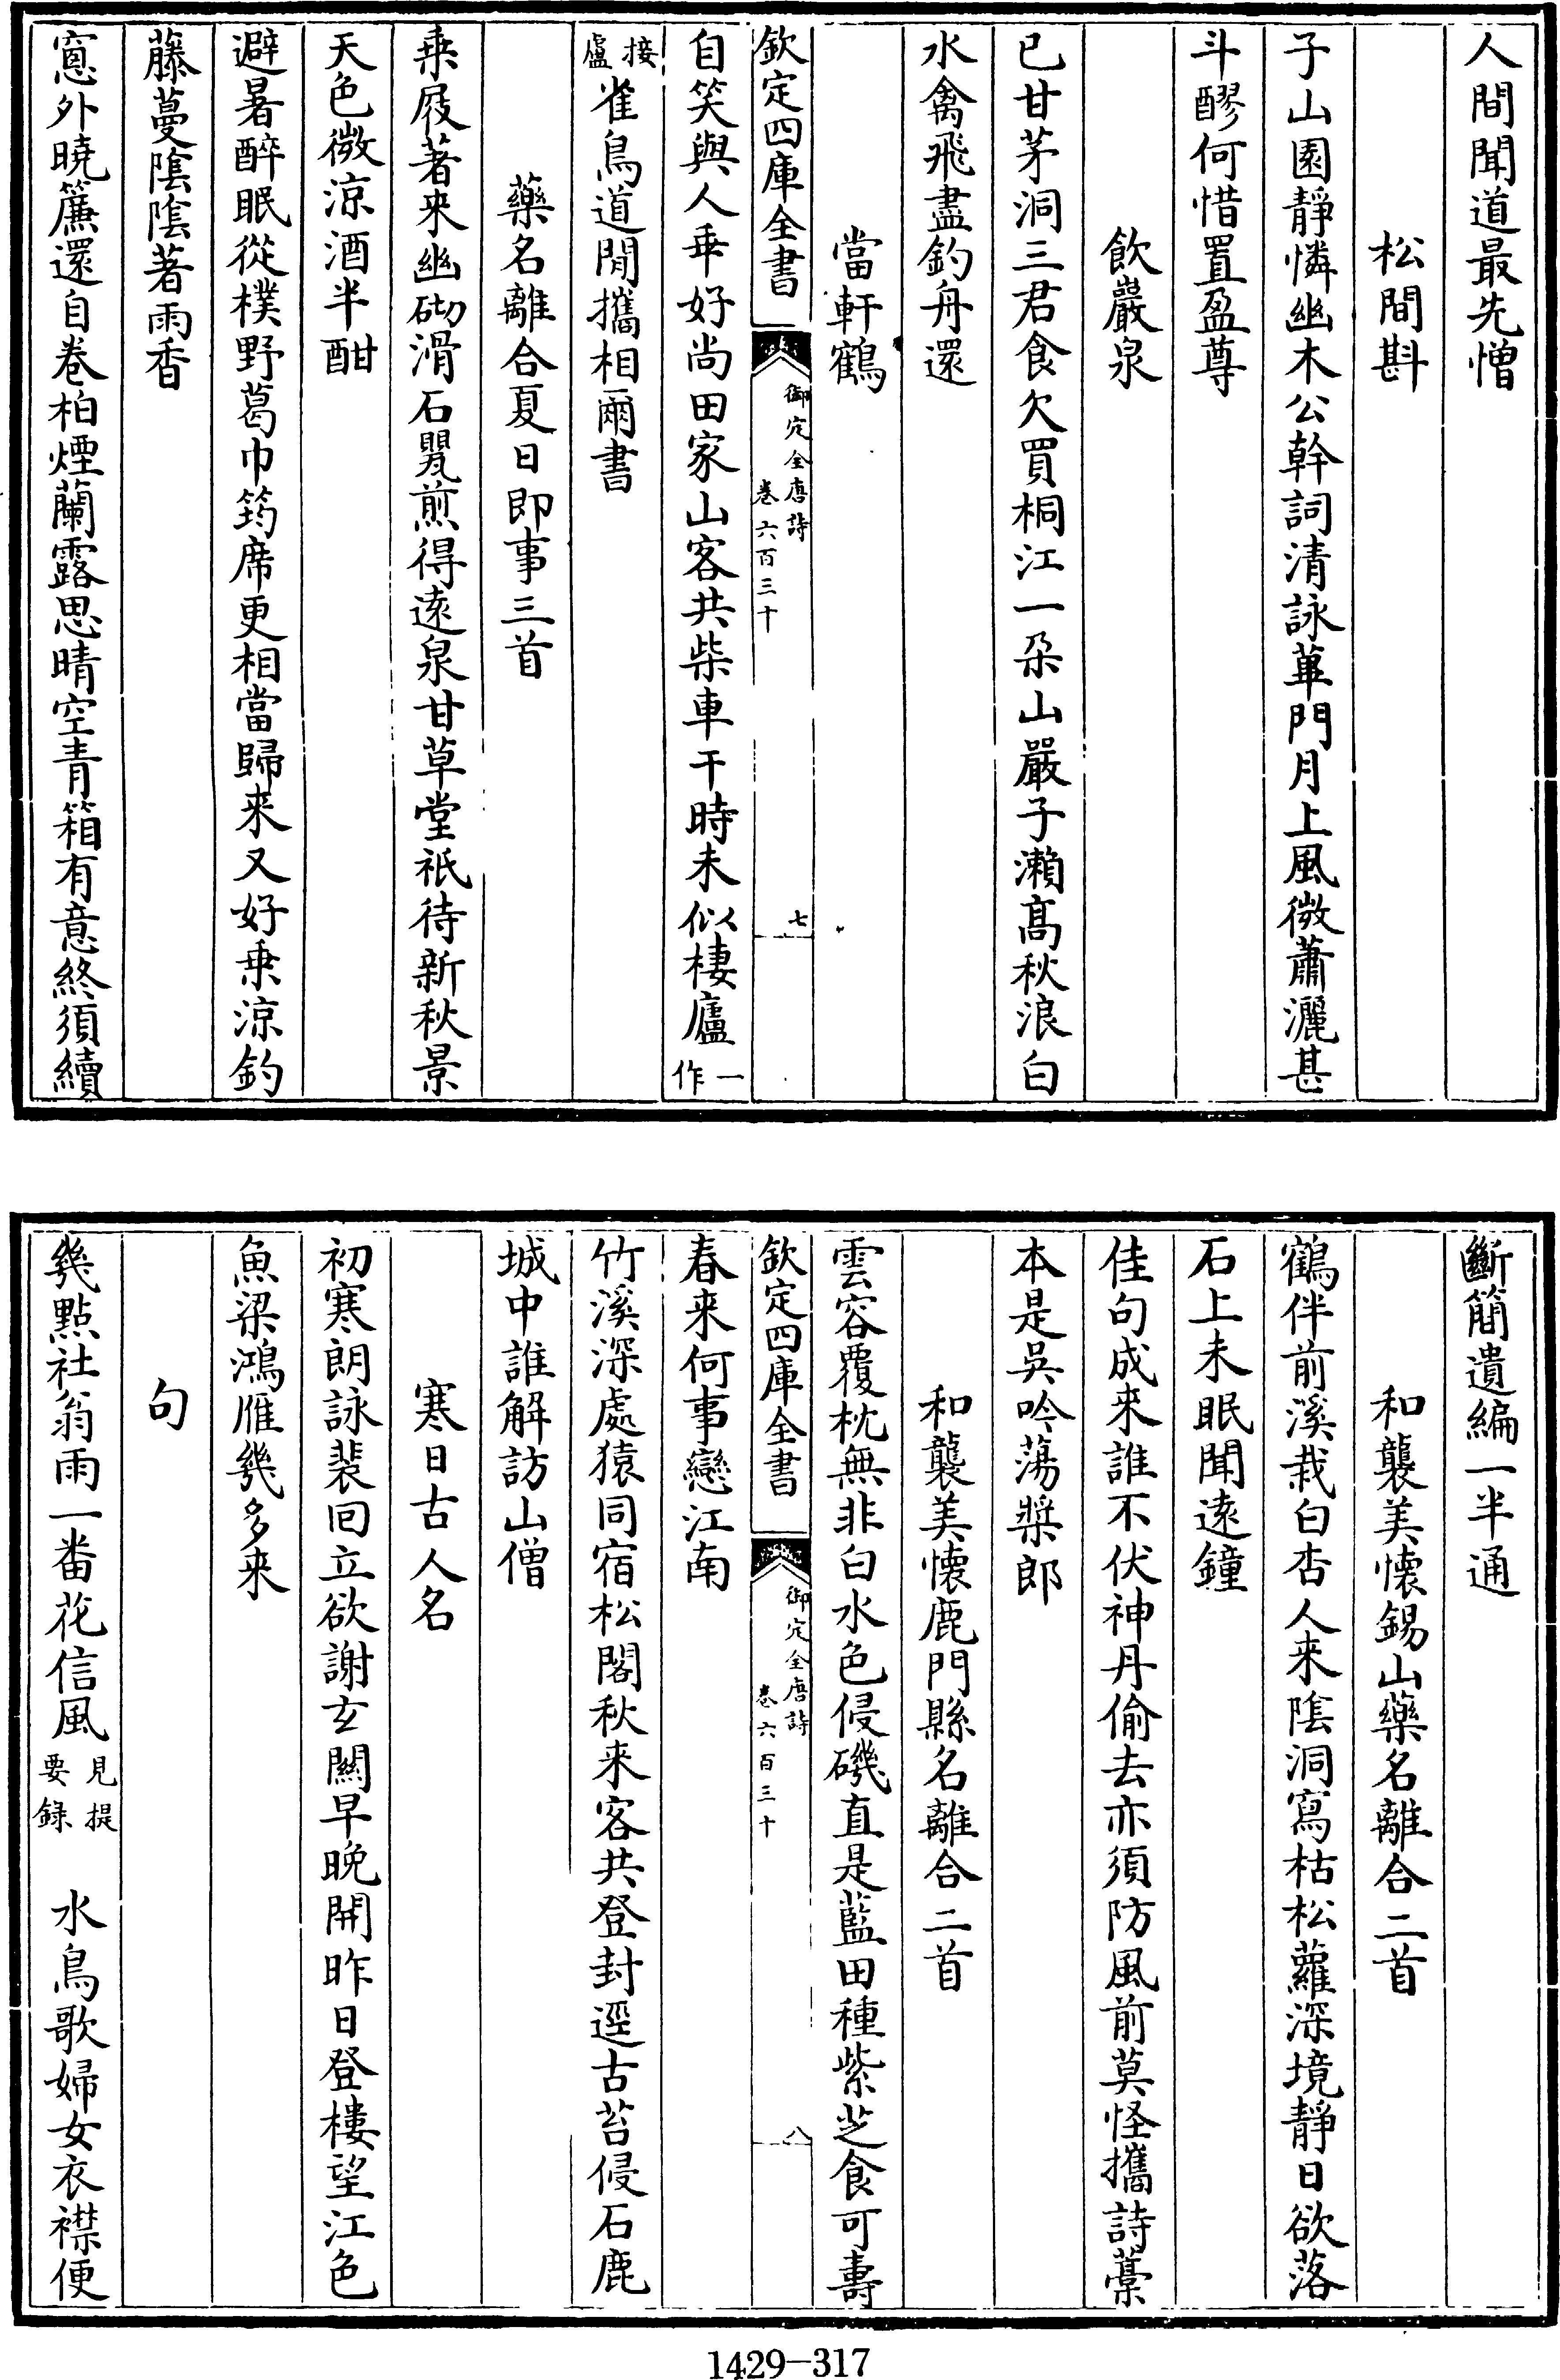 人間聞道最先憎
松間斟
子山園靜憐幽木公幹詞清詠蓽門月上風微蕭灑甚
斗醪何惜置盈尊
飲巖泉
已甘茅洞三君食欠買桐江一朵山嚴子瀨高秋浪白
水禽飛盡釣舟還
當軒鶴
欽定四庫全書
御定全唐詩
卷六百三十
七
自笑與人乖好尚田家山客共柴車干時未似棲廬一作
接盧雀鳥道閒攜相爾書
藥名離合夏日即事三首
乗屐著来幽砌滑石甖煎得遠泉甘草堂祇待新秋景
天色微涼酒半酣
避暑醉眠從樸野葛巾筠席更相當歸来又好乗涼釣
藤蔓陰陰著雨香
窻外曉簾還自卷柏煙蘭露思晴空青箱有意終須續
斷簡遺編一半通
和襲美懷錫山藥名離合二首
鶴伴前溪栽白杏人来陰洞寫枯松蘿深境靜日欲落
石上未眠聞遠鐘
佳句成来誰不伏神丹偷去亦須防風前莫怪攜詩藁
本是吳吟蕩槳郎
和襲美懷鹿門縣名離合二首
雲容覆枕無非白水色侵磯直是藍田種紫芝食可夀
欽定四庫全書
御定全唐詩
卷六百三十
八
春来何事戀江南
竹溪深處猿同宿松閣秋来客共登封逕古苔侵石鹿
城中誰解訪山僧
寒日古人名
初寒朗詠裴回立欲謝玄關早晚開昨日登樓望江色
魚梁鴻雁幾多来
句
幾點社翁雨一番花信風見提要錄　水鳥歌婦女衣襟便
1429—317